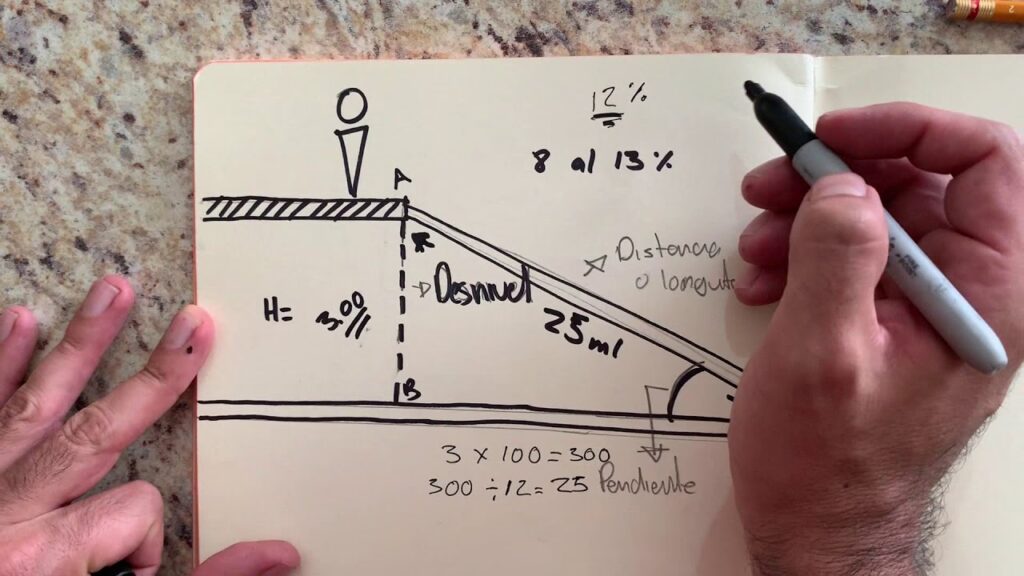 12 %
8 al 13 %
A
Distancia
o longitu
Desnivel
H= 3.00
25 ml
B
3 x 100 = 300
300 ÷ 12 = 25 Pendiente